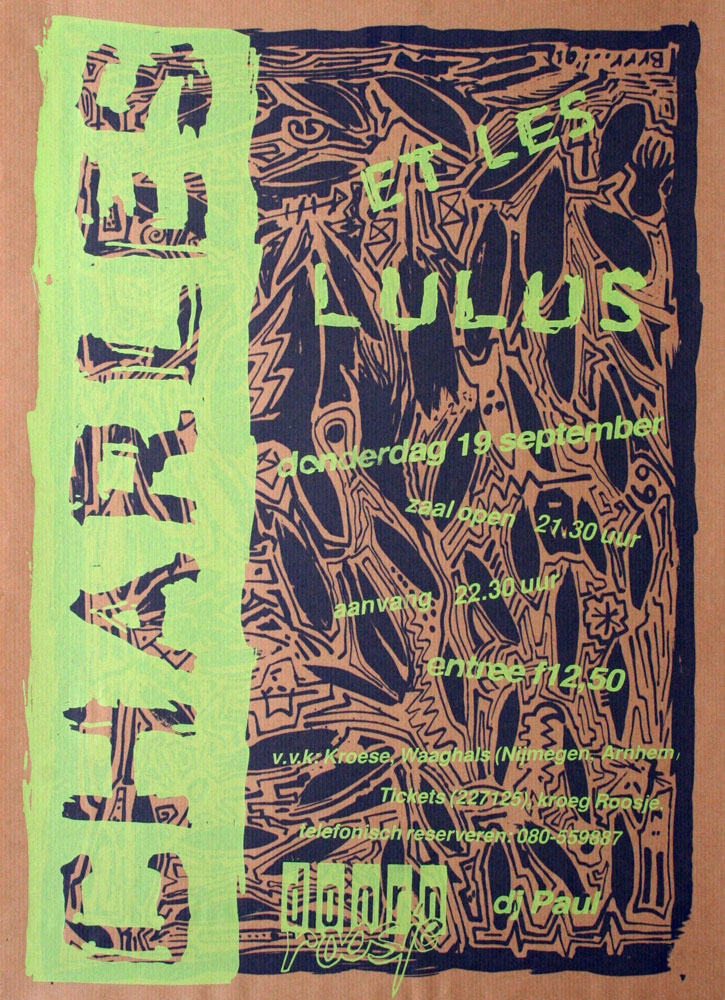 CHARLES
ET LES
LULUS
donderdag 19 september
zaal open 21.30 uur
aanvang 22.30 uur
entree f12,50
v.v.k: Kroese, Waaghals (Nijmegen. Arnhem)
Tickets (227125), kroeg Roosje.
telefonisch reserveren: 080-559887
doornroosje
dj Paul